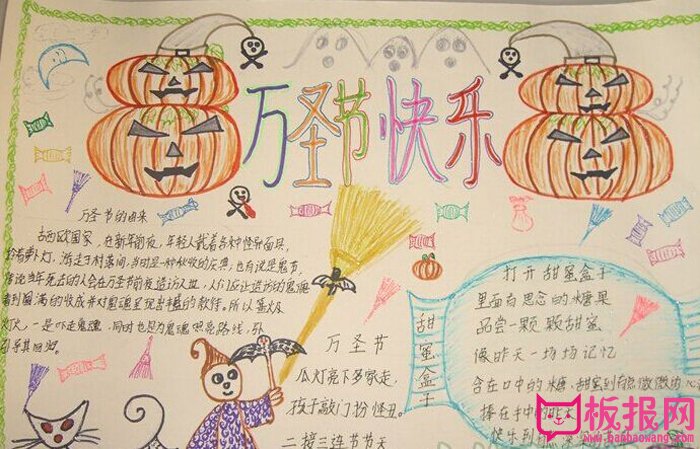 万圣节快乐
万圣节的由来
古西欧国家，在新年前夜，年轻人戴着各种怪异面具，
拎着萝卜灯，游走于村落间，当时是一种秋收的庆典；也有说是鬼节，
传说当年死去的人会在万圣节前夜造访人世，人们应让造访的鬼魂
看到圆满的收成并对鬼魂呈现出丰盛的款待。所以篝火及
灯火，一是吓走鬼魂，同时也是为鬼魂照亮路线，
引导其回归。
万圣节
瓜灯亮下多家走，
孩子敲门扮怪丑。
二接三连节节天
甜蜜盒子
打开甜蜜盒子
里面有思念的糖果
品尝一颗颗甜蜜
像昨天一场场记忆
含在口中的糖，甜蜜到有微微的
捧在手中的
快乐到
板报网
www.banbaowang.com